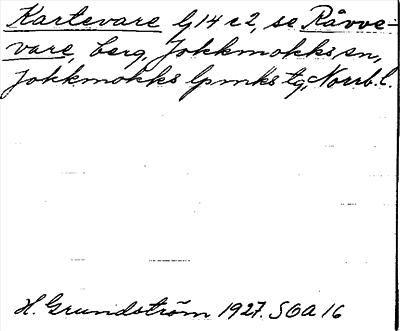 Kartevare lj 14 c 2, se Råvve-
vare, berg, Jokkmokks sn,
Jokkmokks lpmks tg, Norrb. l.
H. Grundström 1927. SOA 16